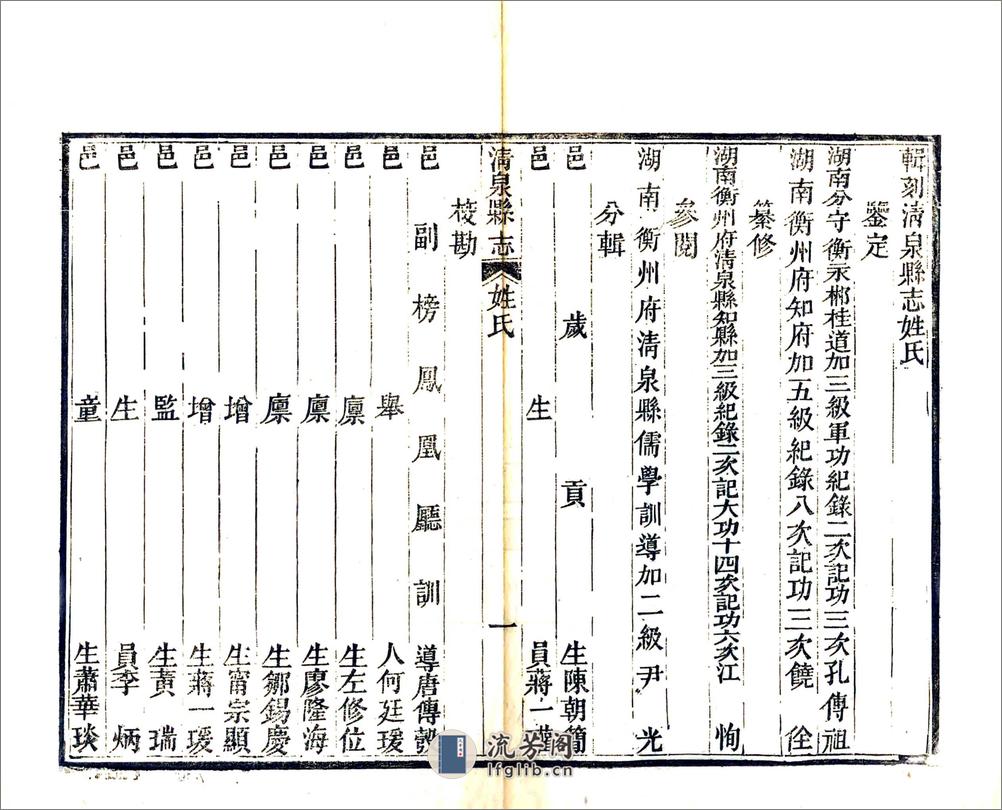 輯刻清泉縣志姓氏
鑒定
湖南分守衡永郴桂道加三級軍功紀錄二次記功三次孔傳祖
湖南衡州府知府加五級紀錄八次記功三次饒佺
纂修
湖南衡州府清泉縣知縣加三級紀錄二次記大功十四次記功六次江恂
參閱
湖南衡州府清泉縣儒學訓導加二級尹光
分輯
邑歲貢生陳朝簡
邑生員蔣一
清泉縣志 姓氏 一
校勘
邑副榜鳳凰廳訓導唐傳
邑舉人何廷瑗
邑廩生左修位
邑廩生廖隆海
邑廩生鄒錫慶
邑增生甯宗顯
邑增生蔣一瑗
邑監生黃瑞
邑生員李炳
邑童生蕭華琰
流芳阁
lfglib.cn